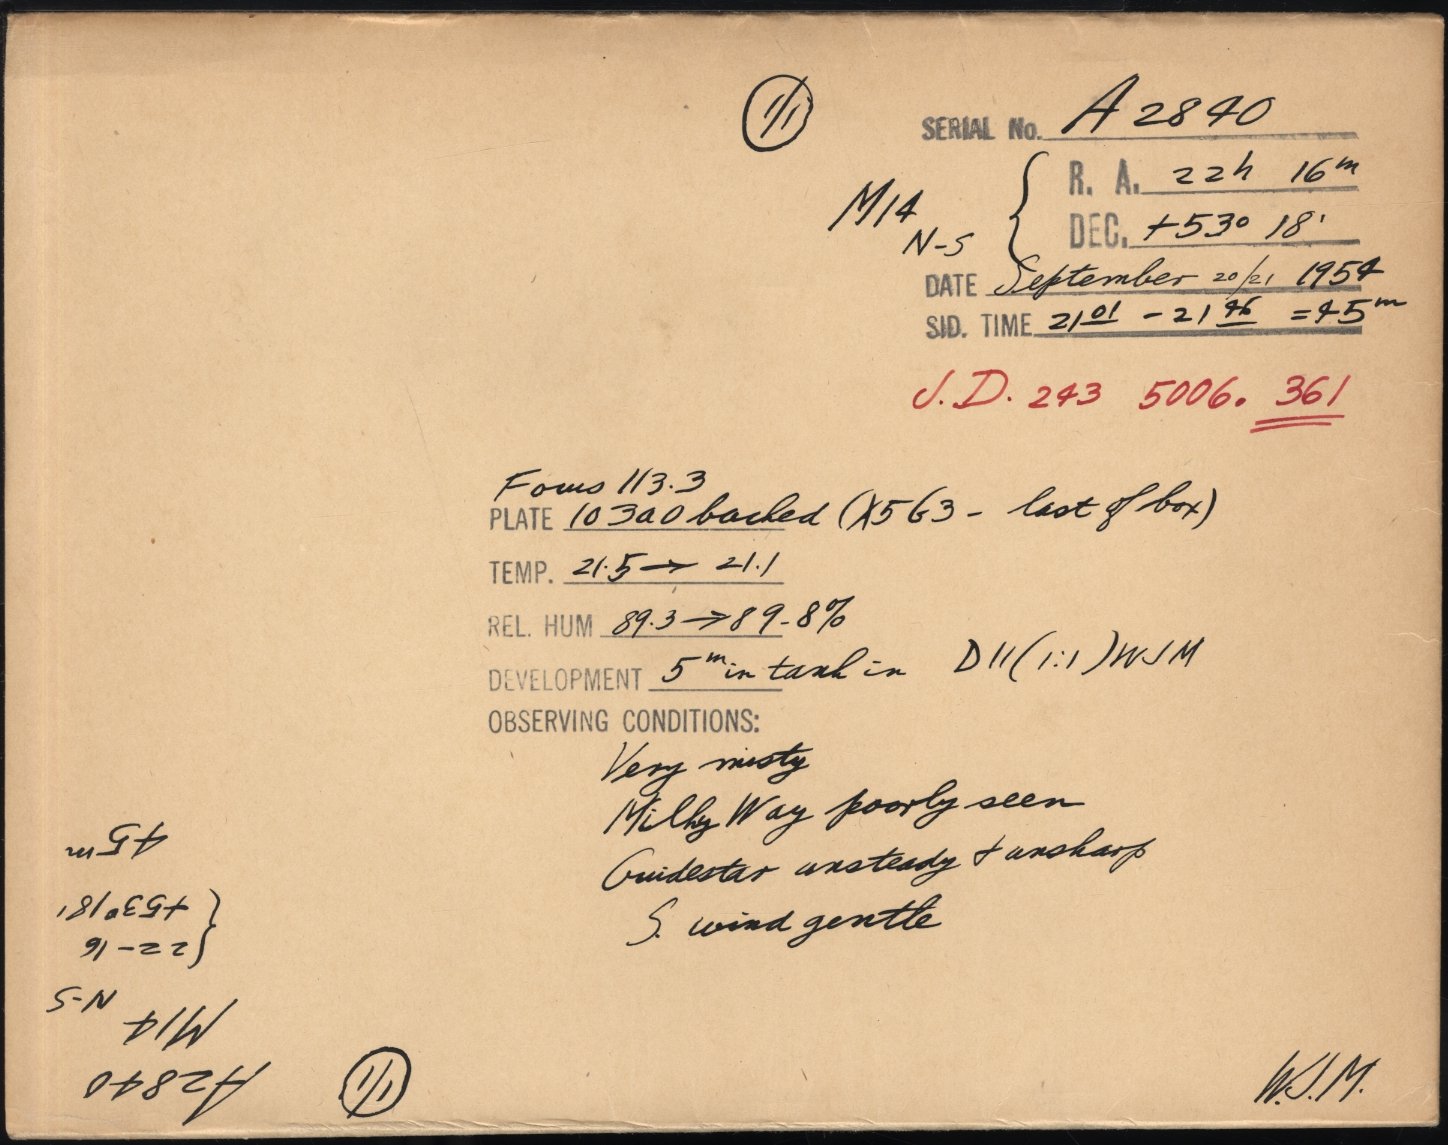 1/1
SERIAL No. A 2840
R. A. 22h 16m
M14
N-S
DEC. +53° 18'
DATE September 20/21 1954
SID. TIME 21 01 - 21 46 = 45m
J.D. 243 5006. 361
Focus 113.3
PLATE 103aO backed (X563 - last of box)
TEMP. 21.5 → 21.1
REL. HUM 89.3 → 89.8%
DEVELOPMENT 5m in tank in D11 (1:1) WJM
OBSERVING CONDITIONS:
Very misty
Milky Way poorly seen
Guidestar unsteady & unsharp
S. wind gentle
W.J.M.
1/1
A2840
M14
N-S
22-16
+53°18'
45m